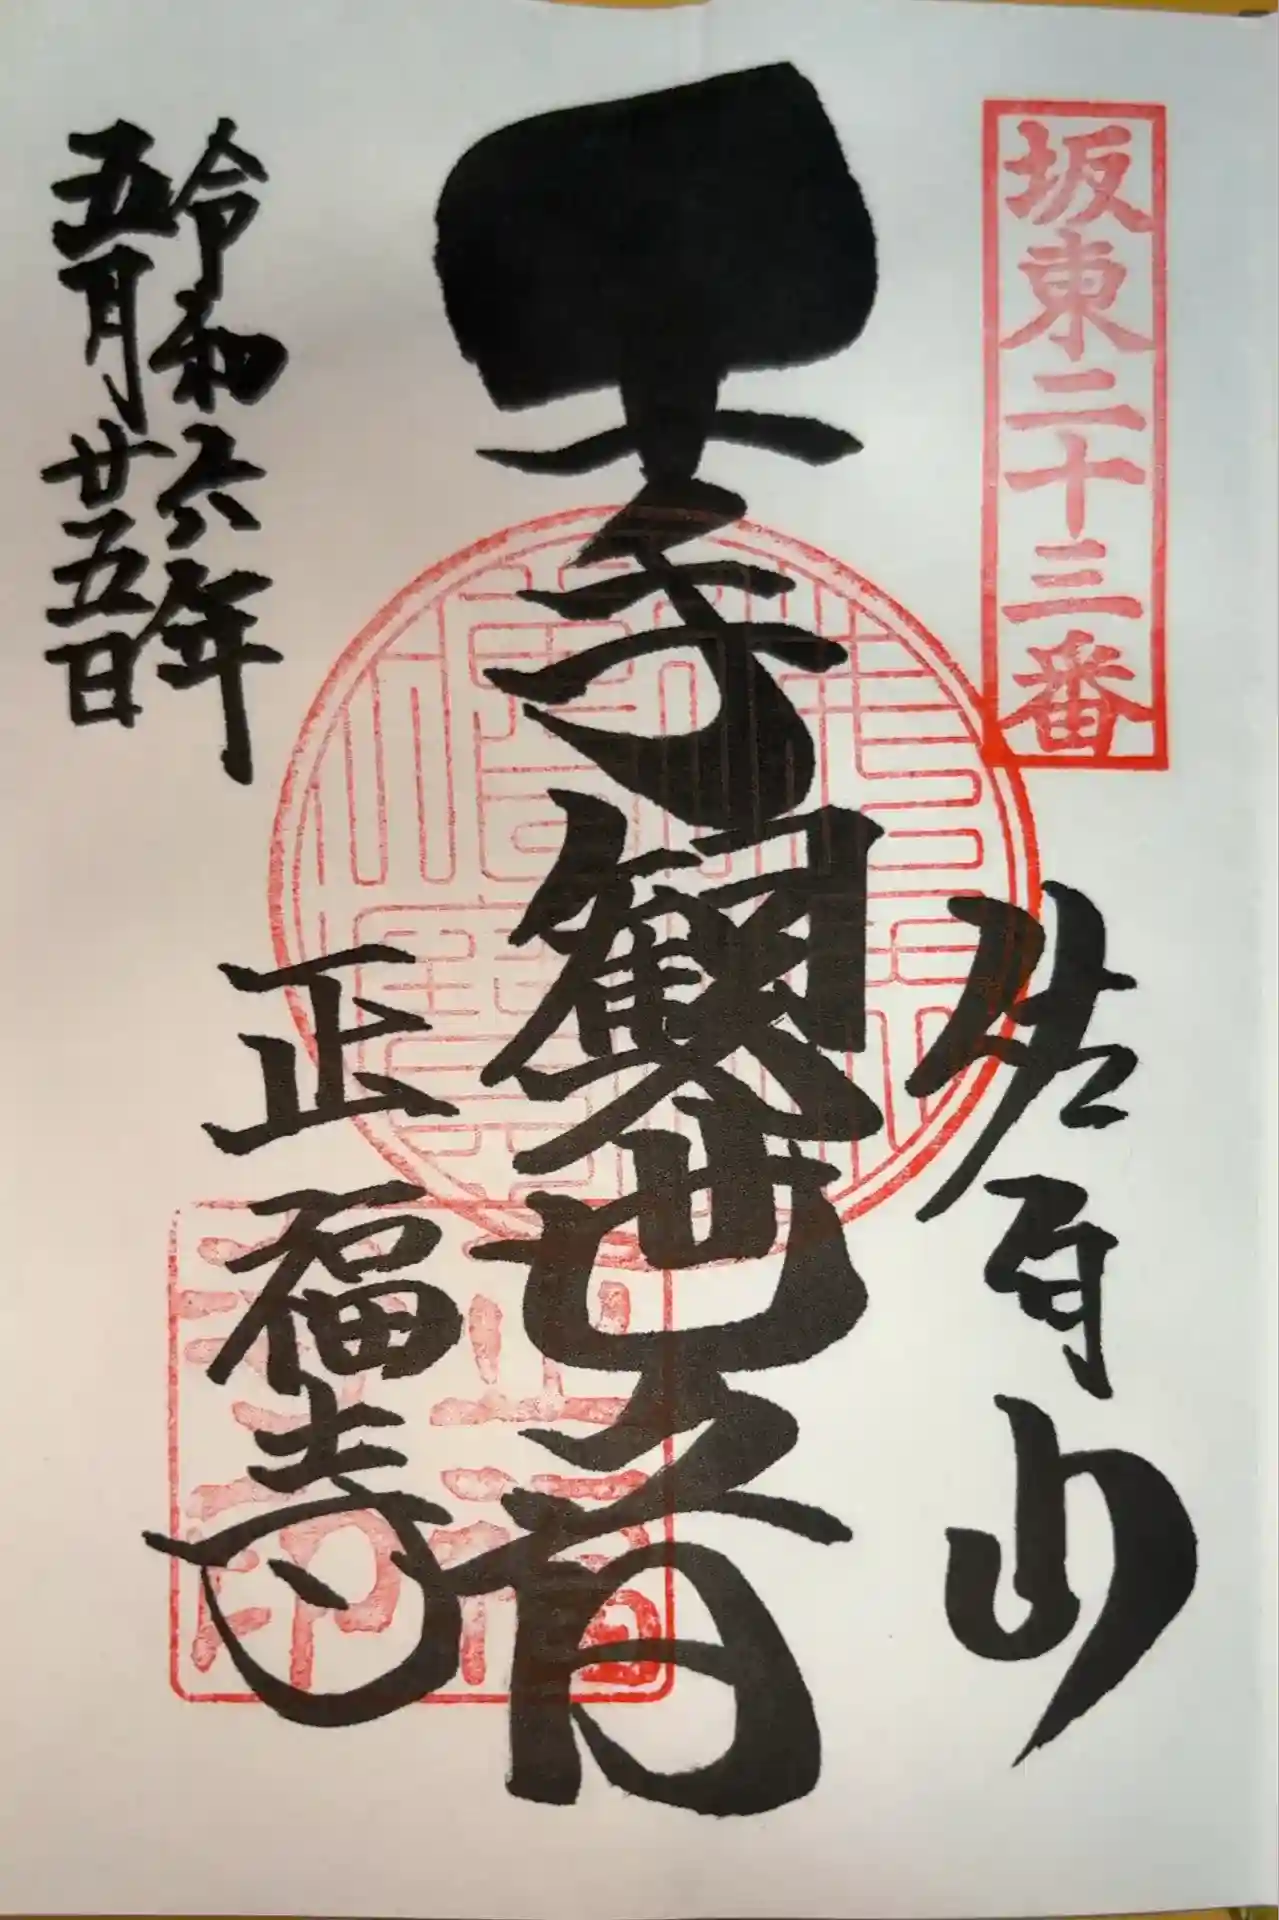 坂東二十三番
佐白山
千手観世音
正福寺
令和六年
五月廿五日